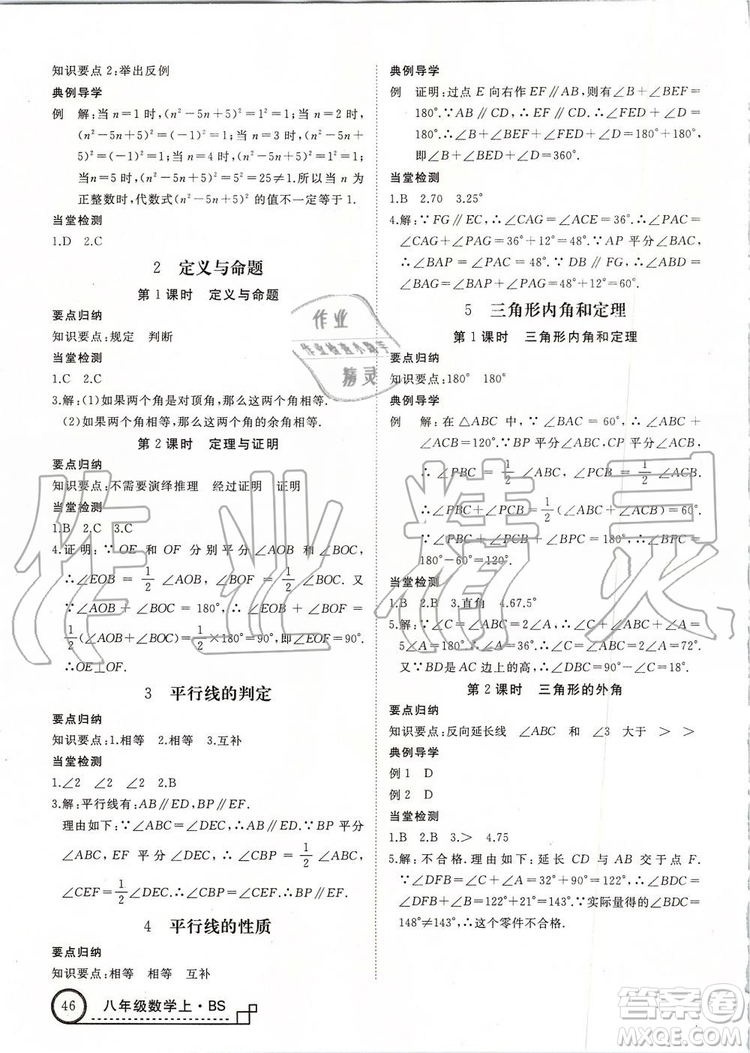 知识要点2:举出反例
典例导学
例 解:当 n=1 时,(n²-5n+5)²=1²=1;当 n=2 时,
(n²-5n+5)²=(-1)²=1;当 n=3 时,(n²-5n+
5)²=(-1)²=1;当 n=4 时,(n²-5n+5)²=1²=1;
当 n=5 时,(n²-5n+5)²=5²=25≠1.所以当 n 为
正整数时,代数式(n²-5n+5)²的值不一定等于1.
当堂检测
1.D 2.C
2 定义与命题
第1课时 定义与命题
要点归纳
知识要点:规定 判断
当堂检测
1.C 2.C
3.解:(1)如果两个角是对顶角,那么这两个角相等.
(2)如果两个角相等,那么这两个角的余角相等.
第2课时 定理与证明
要点归纳
知识要点:不需要演绎推理 经过证明 证明
当堂检测
1.B 2.C 3.C
4.证明:∵OE 和 OF 分别平分∠AOB 和∠BOC,
∴∠EOB=1/2∠AOB,∠BOF=1/2∠BOC.又
∵∠AOB+∠BOC=180°,∴∠EOB+∠BOF=
1/2(∠AOB+∠BOC)=1/2×180°=90°,即∠EOF=90°.
∴OE⊥OF.
3 平行线的判定
要点归纳
知识要点:1.相等 2.相等 3.互补
当堂检测
1.∠2 ∠2 2.B
3.解:平行线有:AB∥ED,BP∥EF.
理由如下:∵∠ABC=∠DEC,∴AB∥ED.∵BP平分
∠ABC,EF平分∠DEC,∴∠CBP=1/2∠ABC,
∠CEF=1/2∠DEC.∴∠CBP=∠CEF.∴BP∥EF.
4 平行线的性质
要点归纳
知识要点:相等 相等 互补
典例导学
例 证明:过点 E 向右作 EF∥AB,则有∠B+∠BEF=
180°.∵AB∥CD,∴EF∥CD,∴∠FED+∠D=
180°.∴∠B+∠BEF+∠FED+∠D=180°+180°,
即∠B+∠BED+∠D=360°.
当堂检测
1.B 2.70 3.25°
4.解:∵FG∥EC,∴∠CAG=∠ACE=36°.∴∠PAC=
∠CAG+∠PAG=36°+12°=48°.∵AP平分∠BAC,
∴∠BAP=∠PAC=48°.∵DB∥FG,∴∠ABD=
∠BAG=∠BAP+∠PAG=48°+12°=60°.
5 三角形内角和定理
第1课时 三角形内角和定理
要点归纳
知识要点:180° 180°
典例导学
例 解:在△ABC中,∵∠A=60°,∴∠ABC+
∠ACB=120°.∵BP平分∠ABC,CP平分∠ACB,
∴∠PBC=1/2∠ABC,∠PCB=1/2∠ACB.
∴∠PBC+∠PCB=1/2(∠ABC+∠ACB)=
60°.∵∠PBC+∠PCB+∠BPC=180°,∴∠BPC=
180°-60°=120°.
当堂检测
1.B 2.B 3.直角 4.67.5°
5.解:∵∠C=∠ABC=2∠A,∴∠C+∠ABC+∠A=
5∠A=180°.∴∠A=36°.∴∠C=∠ABC=2∠A=72°.
又∵BD是AC边上的高,∴∠DBC=90°-∠C=18°.
第2课时 三角形的外角
要点归纳
知识要点:反向延长线 ∠ABC 和∠3 大于 > >
典例导学
例1 D
例2 D
当堂检测
1.B 2.B 3.> 4.75
5.解:不合格.理由如下:延长 CD 与 AB 交于点 F.
∵∠DFB=∠C+∠A=32°+90°=122°,∴∠BDC=
∠DFB+∠B=122°+21°=143°.∵实际量得的∠BDC=
148°≠143°,∴这个零件不合格.
46 八年级数学上·BS
作业
精灵
作业精灵
答案圈
MXQE.COM